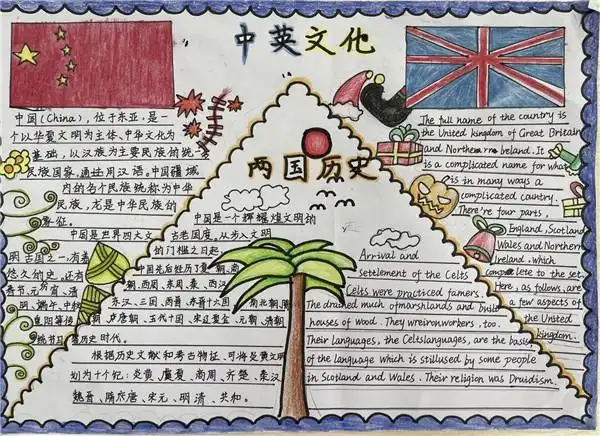 中英文化
中国(China),位于东亚,是一
个以华夏文明为主体、中华文化为
基础,以汉族为主要民族的统一
民族国家,通用汉语。中国疆域
内的各个民族统称为中华
民族,龙是中华民族的
象征。
中国是世界四大文
明古国之一,有着
悠久的历史,还有
春节、元宵、清
明、端午、中秋
重阳等传
统节日
两国历史
中国是一个辉煌文明的
古老国度,从步入文明
的门槛之日起,
中国先后经历了夏朝、商
朝、西周、东周、秦、西汉
东汉、三国、西晋、东晋十六国 南北朝、隋
朝、唐朝、五代十国、宋辽夏金、元朝、清朝
等历史时代。
根据历史文献和考古物证,可将炎黄文明
划为十个纪:炎黄、虞夏、商周、齐楚、秦汉
魏晋、隋唐、宋元、明清、共和。
Arrival and
settlement of the Celts
Celts were practiced famers.
The drained much ofmarshlands and built
houses of wood. They wreironworkers, too.
Their languages, the Celtslanguages, are the basis
of the language which is stillused by some people
in Scotland and Wales. Their religion was Druidism.
The full name of the country is
the United kingdom of Great Britain
and Northern Ireland. It
is a complicated name for what
is in many ways a
complicated country.
There're four parts,
England, Scotland
Wales and Northern
Ireland. which
complete to the set.
Here, as follows, are
a few aspects of
the United
kingdom.